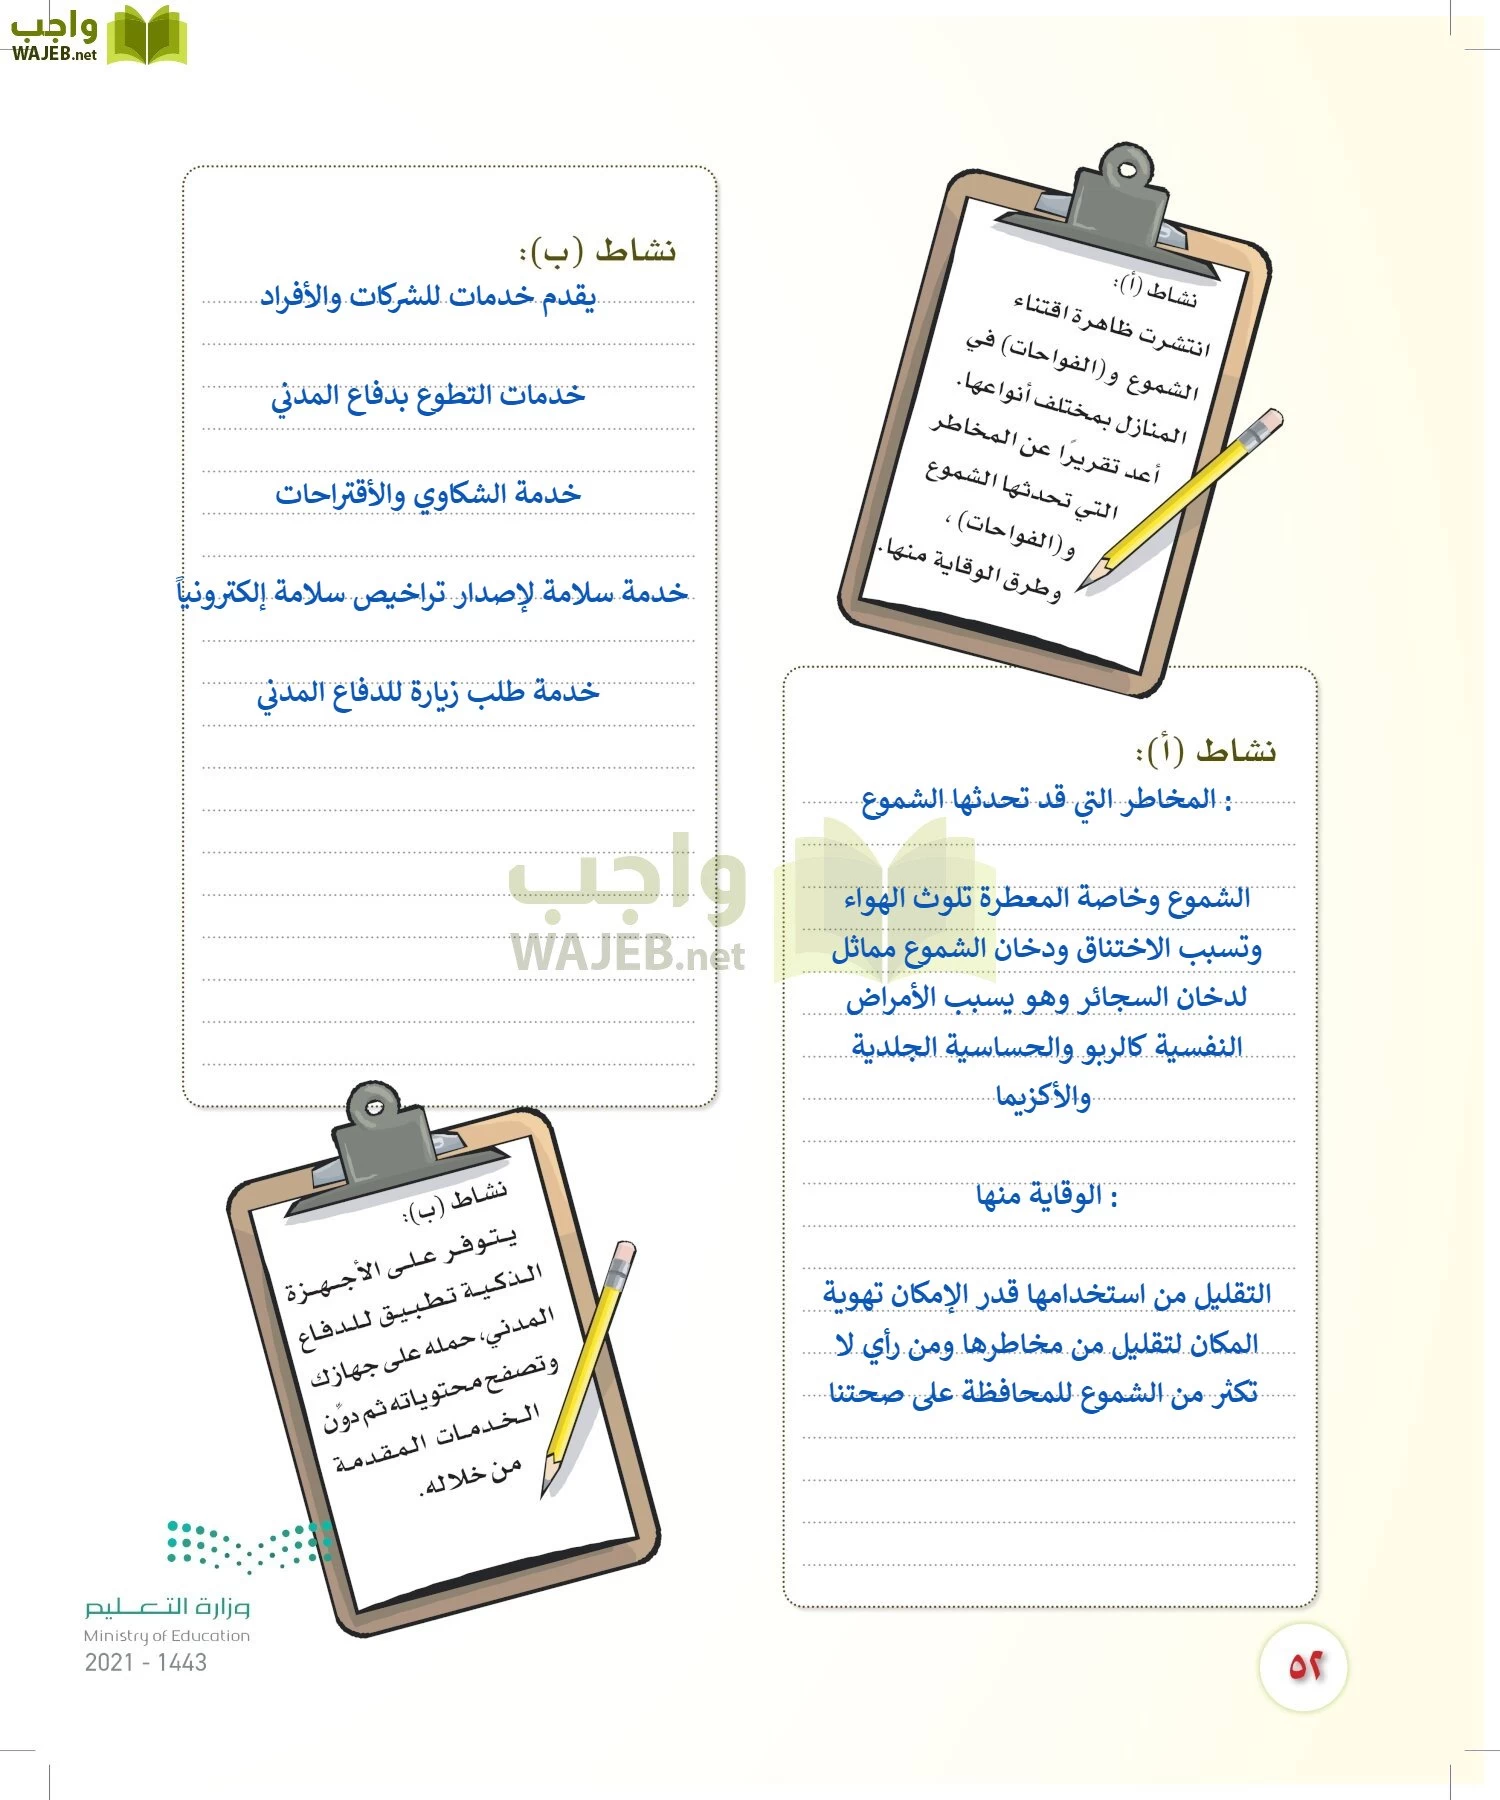 واجب
WAJEB.net
نشاط (أ):
انتشرت ظاهرة اقتناء
الشموع و(الفواحات) في
المنازل بمختلف أنواعها.
أعد تقريرًا عن المخاطر
التي تحدثها الشموع
و(الفواحات) ،
وطرق الوقاية منها.
نشاط (أ):
المخاطر التي قد تحدثها الشموع :
الشموع وخاصة المعطرة تلوث الهواء
وتسبب الاختناق ودخان الشموع مماثل
لدخان السجائر وهو يسبب الأمراض
النفسية كالربو والحساسية الجلدية
والأكزيما
الوقاية منها :
التقليل من استخدامها قدر الإمكان تهوية
المكان لتقليل من مخاطرها ومن رأي لا
تكثر من الشموع للمحافظة على صحتنا
نشاط (ب):
يقدم خدمات للشركات والأفراد
خدمات التطوع بدفاع المدني
خدمة الشكاوي والأقتراحات
خدمة سلامة لإصدار تراخيص سلامة إلكترونياً
خدمة طلب زيارة للدفاع المدني
واجب
WAJEB.net
نشاط (ب):
يتوفر على الأجهزة
الذكية تطبيق للدفاع
المدني، حمله على جهازك
وتصفح محتوياته ثم دوّن
الخدمات المقدمة
من خلاله.
وزارة التعليم
Ministry of Education
2021 - 1443
٥٢